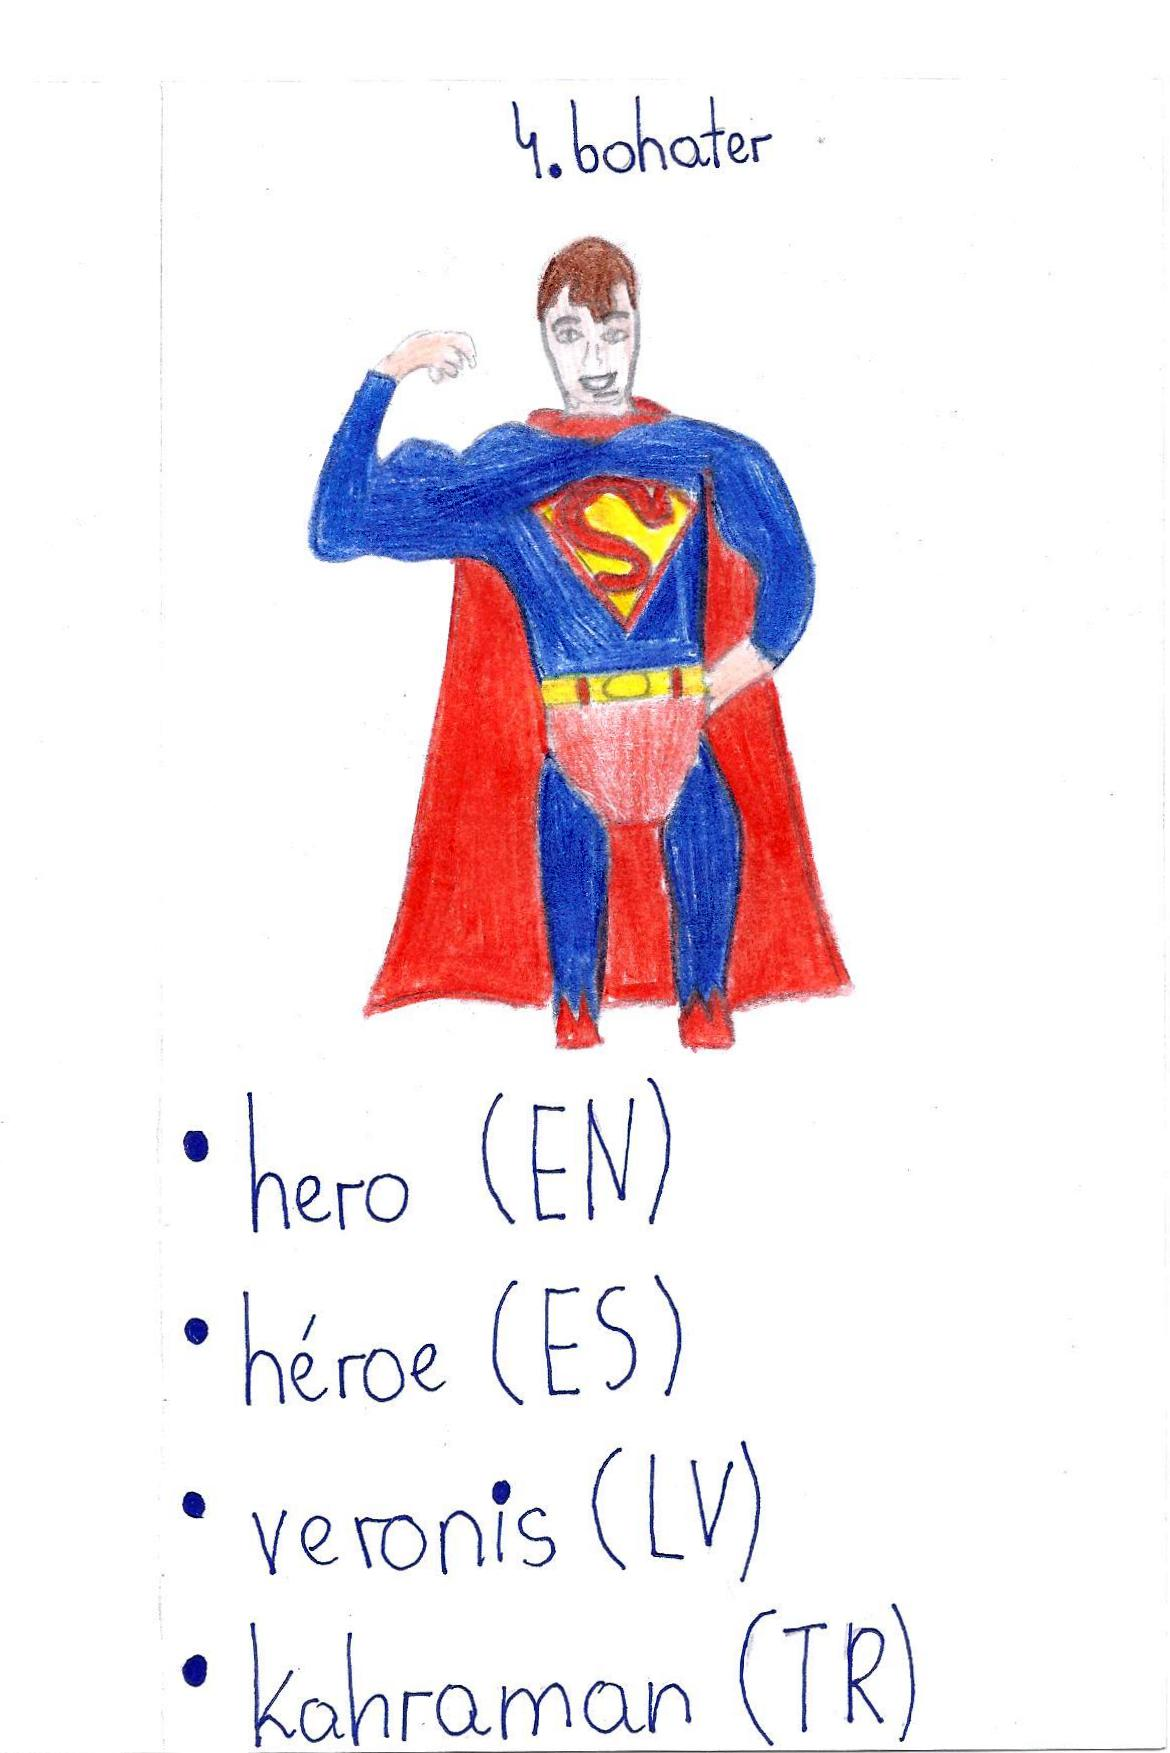 4. bohater
S
• hero (EN)
• héroe (ES)
• veronis (LV)
• kahraman (TR)